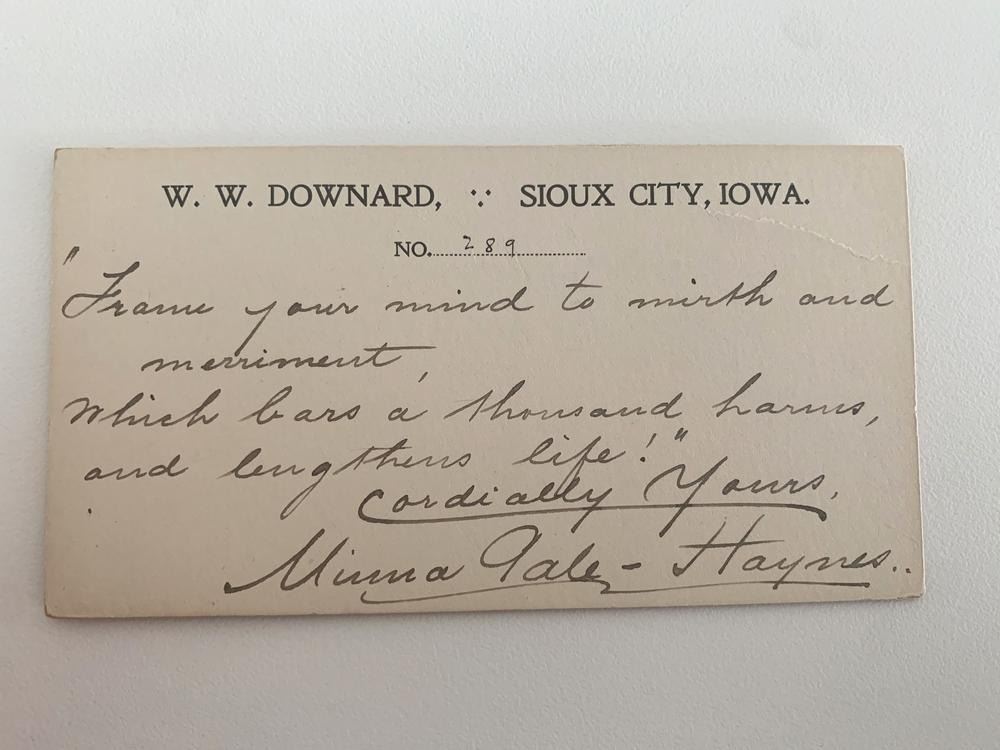 W. W. DOWNARD, ∵ SIOUX CITY, IOWA.
NO. 289
"Frame your mind to mirth and
merriment,
Which bars a thousand harms,
and lengthens life!"
Cordially Yours,
Minna Gale-Haynes..